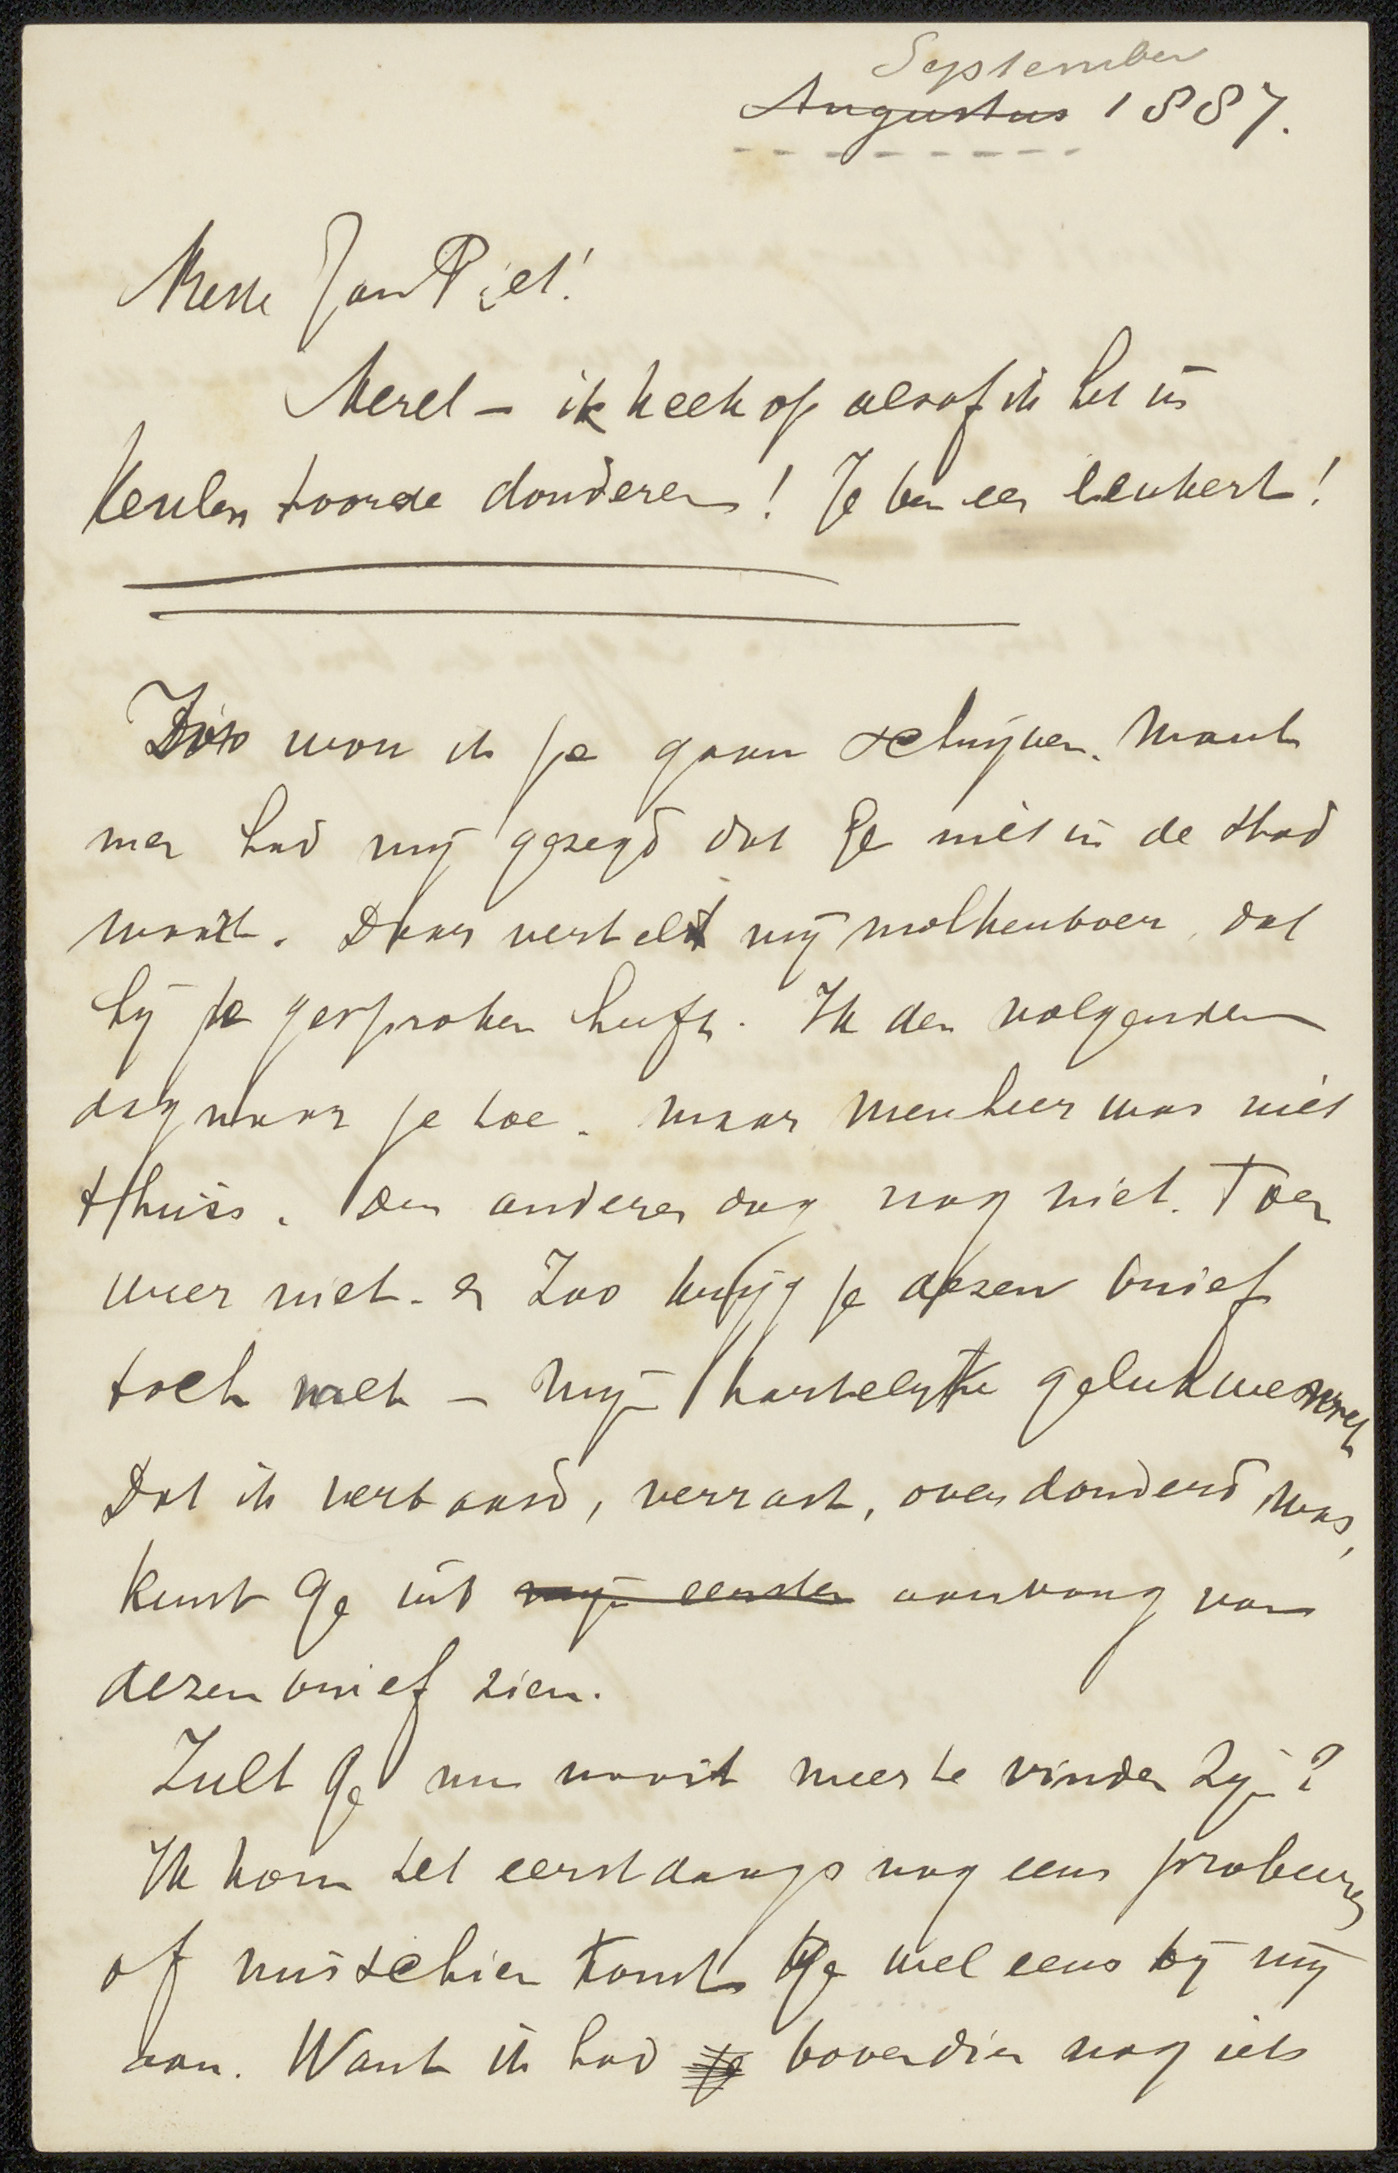 September
Augustus 1887.
Beste Jan Piet!
Kerel – ik keek op alsof ik het in
Keulen hoorde donderen! Je ben een leukert!
Zóó wou ik je gaan schrijven. Want
men had mij gezegd dat Ge niet in de stad
waart. Daar vertelt mij Molkenboer, dat
hij je gesproken heeft. Ik den volgenden
dag naar je toe. maar menheer was niet
thuis. Den anderen dag nog niet. Toen
weer niet. en Zoo krijg je dezen brief
toch met – mijn hartelijke gelukwensch
Dat ik verbaasd, verrast, overdonderd was,
kunt Ge uit mijn eersten aanvang van
dezen brief zien.
Zult Ge nu nooit meer te vinden zijn?
Ik kom het eerstdaags nog eens probeeren
of misschien komt Ge wel eens bij mij
aan. Want ik had je bovendien nog iets